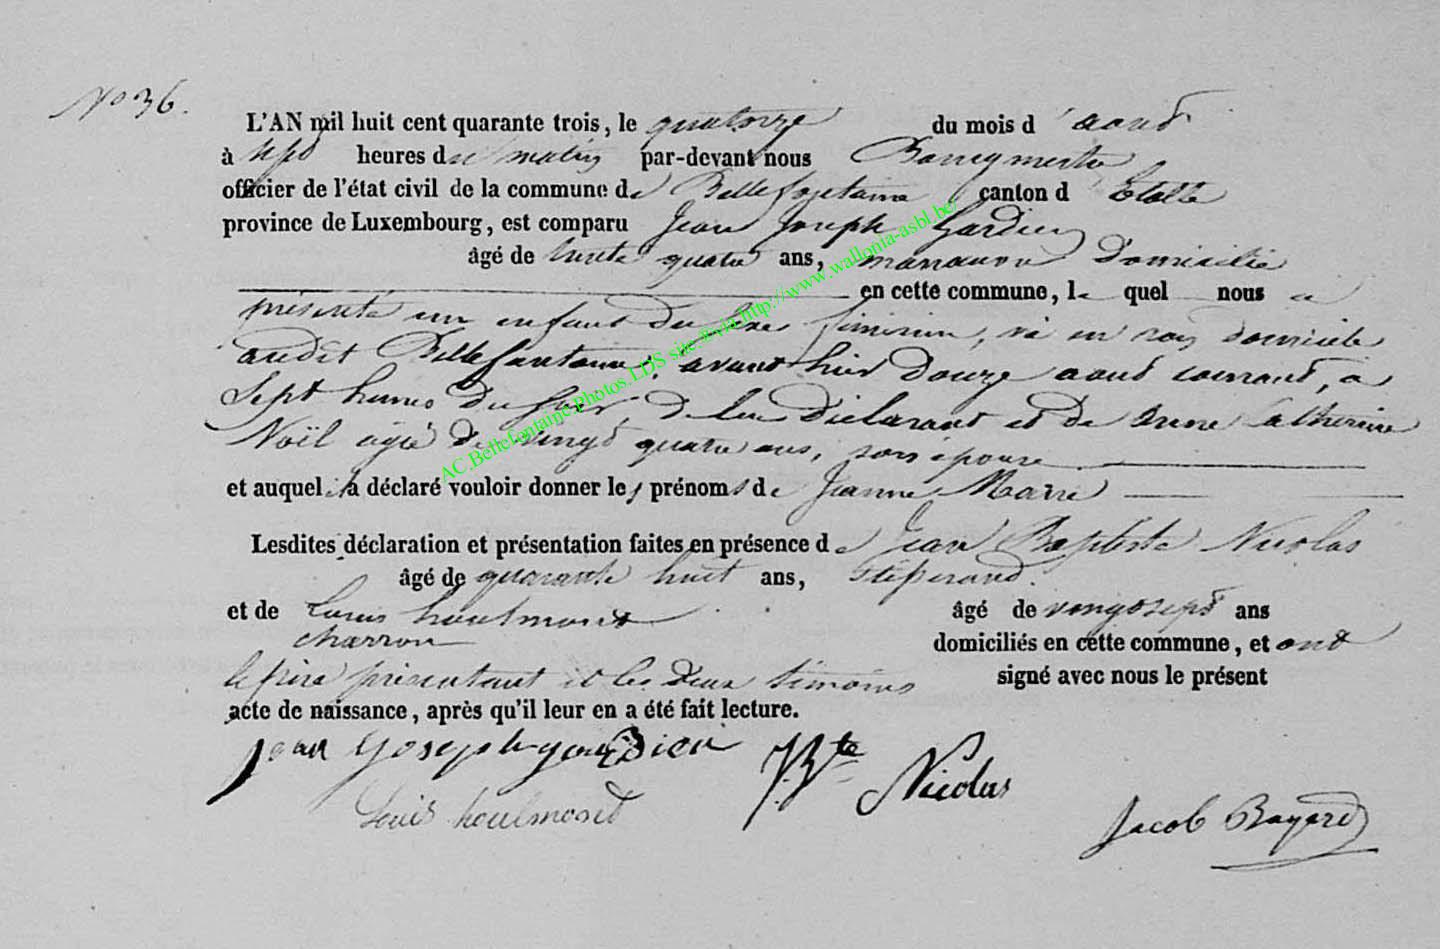 No 36.
L'AN mil huit cent quarante trois, le quatorze du mois d'aout
à sept heures du matin par-devant nous Bourgmestre
officier de l'état civil de la commune de Bellefontaine canton d'Etalle
province de Luxembourg, est comparu Jean Joseph Gardien
âgé de trente quatre ans, manœuvre Domicilié
en cette commune, le quel nous a
présenté un enfant du sexe féminin, né en son domicile
audit Bellefontaine, avant hier Douze aout courant, à
Sept heures du soir, de lui Déclarant et de Anne Catherine
Noël âgée de vingt quatre ans, son épouse
et auquel il a déclaré vouloir donner les prénoms de Jeanne Marie
Lesdites déclaration et présentation faites en présence de Jean Baptiste Nicolas
âgé de quarante huit ans,
et de Louis houlmont âgé de vingt sept ans
charron domiciliés en cette commune, et ont
le père présentant et les deux témoins signé avec nous le présent
acte de naissance, après qu'il leur en a été fait lecture.
jean Joseph gardien J. Bte Nicolas
Louis houlmont Jacob Bayard
AC Bellefontaine-Photos LDS site ®via http://www.wallonia-asbl.be/